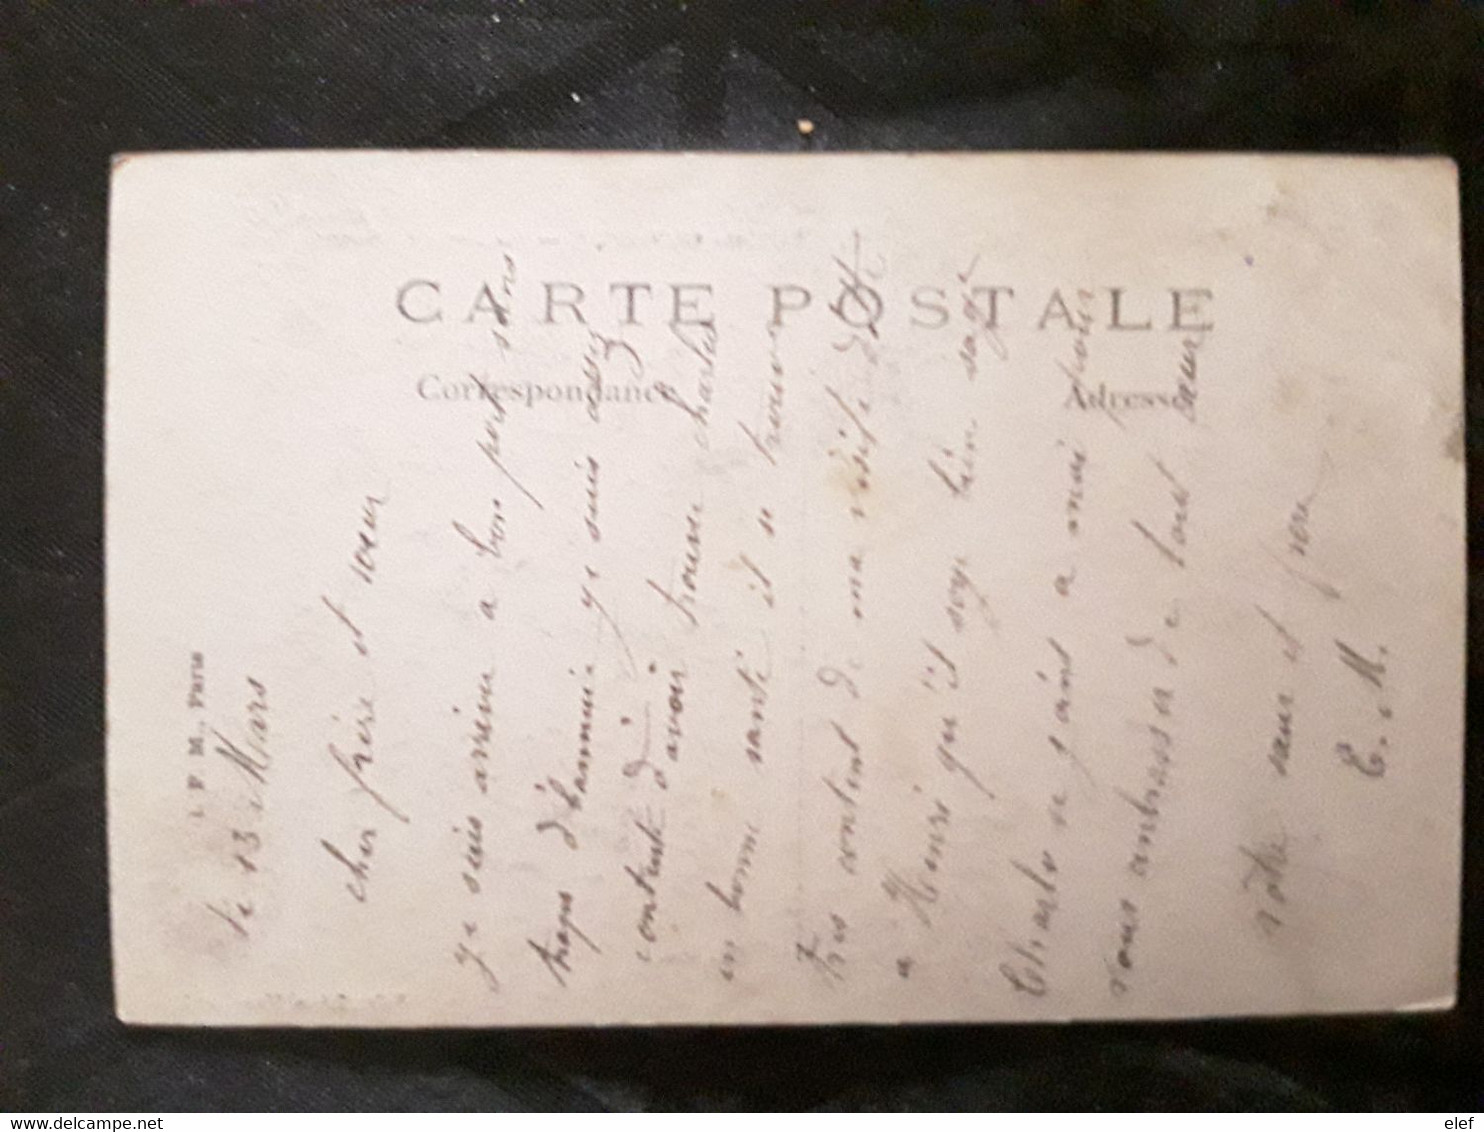 CARTE POSTALE
Correspondance
Adresse
I. P. M., Paris
le 13 Mars
cher frère et soeur
ye suis arrivé a bon port sans
trops d'hannuie ye suis assez
contente d'avoir trouve charles
en bonne santé il se trouve
tres contant de ma visite dit
a Henri qu'il soye bien sage
Charle se join a moi pour
vous anbrasser de tout cœur
votre sœur et frere
E. M.
elef